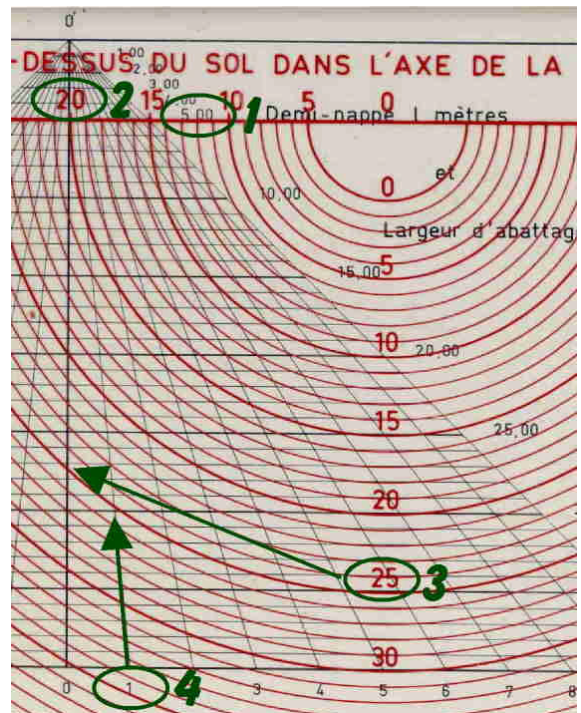 0'
1,00
-DESSUS DU SOL DANS L'AXE DE LA
2,00
3,00
20 2 15 4,00 10 5 0
5,00 1 Demi-nappe l mètres
0 et
10,00
Largeur d'abattag
5
15,00
10
20,00
15
25,00
20
25 3
30
0 1 4 3 4 5 6 7 8